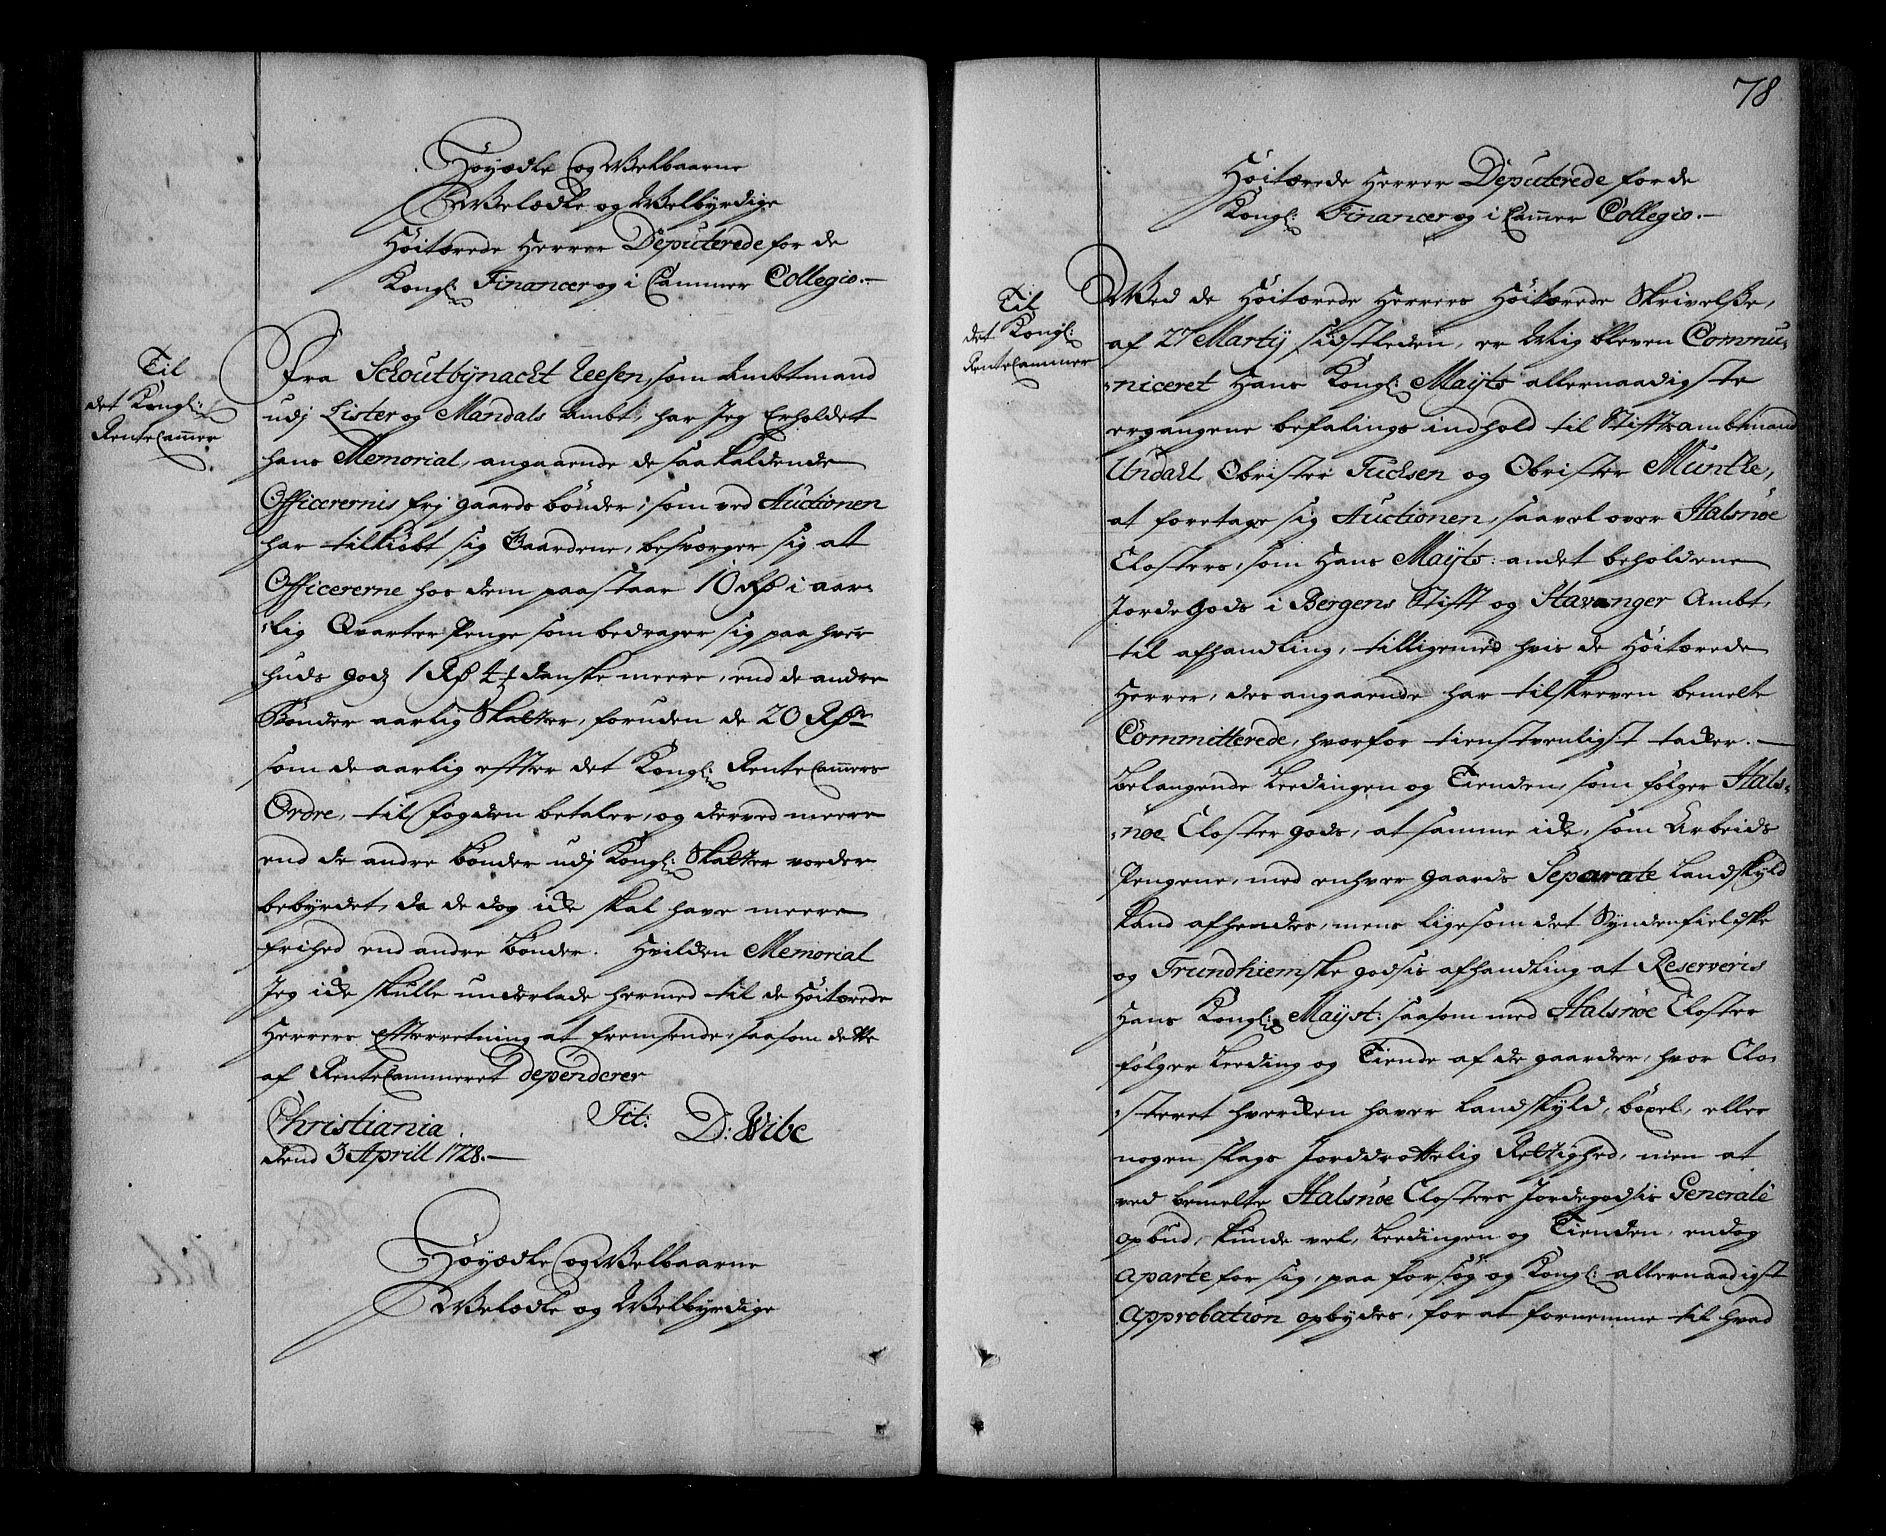 Høyædle og Welbaarne
Welædle og Welbyrdige
Høitærede Herrer Deputerede for de
Kongl: Financer og i Cammer Collegio.
Til
det Kongl:
Rente Cammer
Fra Schoutbynacht Leesen, som Ambtmand
udj Lister og Mandals Ambt, har Jeg Erholdet
hans Memorial, angaaende de saa kaldende
Officerernis frj gaards bønder, som ved Auctionen
har tilkiøbt sig Gaardene, besværger sig at
Officererne hos dem paastaar 10 Rdr i aar-
lig Qvarter Penge som bedrager sig paa hver
huds godz 1 Rdr danske meere, end de andre
Bønder aarlig Skatter, foruden de 20 Rdr
som de aarlig efter det Kongl: Rente Cammers
Ordre, til Fogden betaler, og derved meere
end de andre bønder udj Kongl: Skatter vorder
bebyrdet, da de dog icke skal have meere
frihed end andre bønder. Hvilden Memorial
Jeg icke skulle underlade hermed til de Høitærede
Herrers Efterretning at fremsende, saasom dette
af Rente Cammeret dependerer
Christiania Tit: D: Wibe
dend 3 Aprill 1728.
Høyædle og Welbaarne
Welædle og Welbyrdige
78
Høitærede Herrer Deputerede for de
Kongl: Financer og i Cammer Collegio.
Til
det Kongl:
Rente Cammer
Med de Høitærede Herrers Høitærede Skrivelse,
af 27 Martij sidstleden, er Mig bleven Commu-
niceret Hans Kongl: Mayts allernaadigste
ergangene befalings indhold til Stiftsambtmand
Undall Obrister Tuchsen og Obrister Munthe,
at foretage sig Auctionen, saavel over Halsnøe
Closters, som Hans Mayts: andet beholdene
Jordegods i Bergens Stift og Stavanger Ambt,
til afhandling, tilligemed hvis de Høitærede
Herrer, des angaaende har tilskreven bemelte
Committerede, hvorfor tienstvenligst tacker.
Belangende Leedingen og Tienden, som følger Hals-
nøe Closter gods, at samme icke, som Arbeids
Pengene, med enhver gaards Separate Landskyld
kand afhendes, mens ligesom det Syndenfieldske
og Trundhiemske godsis afhandling at Reserveris
Hans Kongl: Mayst: saasom med Halsnøe Closter
følger Leeding og Tiende af de gaarder, hvor Clo-
steret hvercken haver Landskyld, böxel, eller
nogen slags Jorddrottelig Rettighed, men at
ved bemelte Halsnøe Closters Jordegodsis Generale
opbud, kunde vel, Leedingen og Tienden, endog
aparte for sig, paa forsøg og Kongl: allernaadigst
Approbation opbydes, for at fornemme til hvad